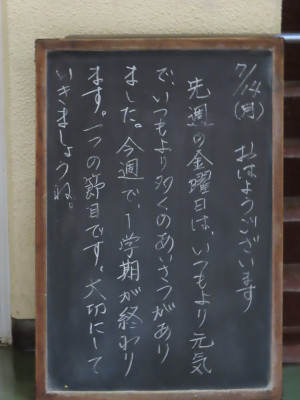 7/14(月) おはようございます
先週の金曜日は、いつもより元気
で、いつもより多くのあいさつがあり
ました。今週で、1学期が終わり
ます。一つの節目です。大切にして
いきましょうね。